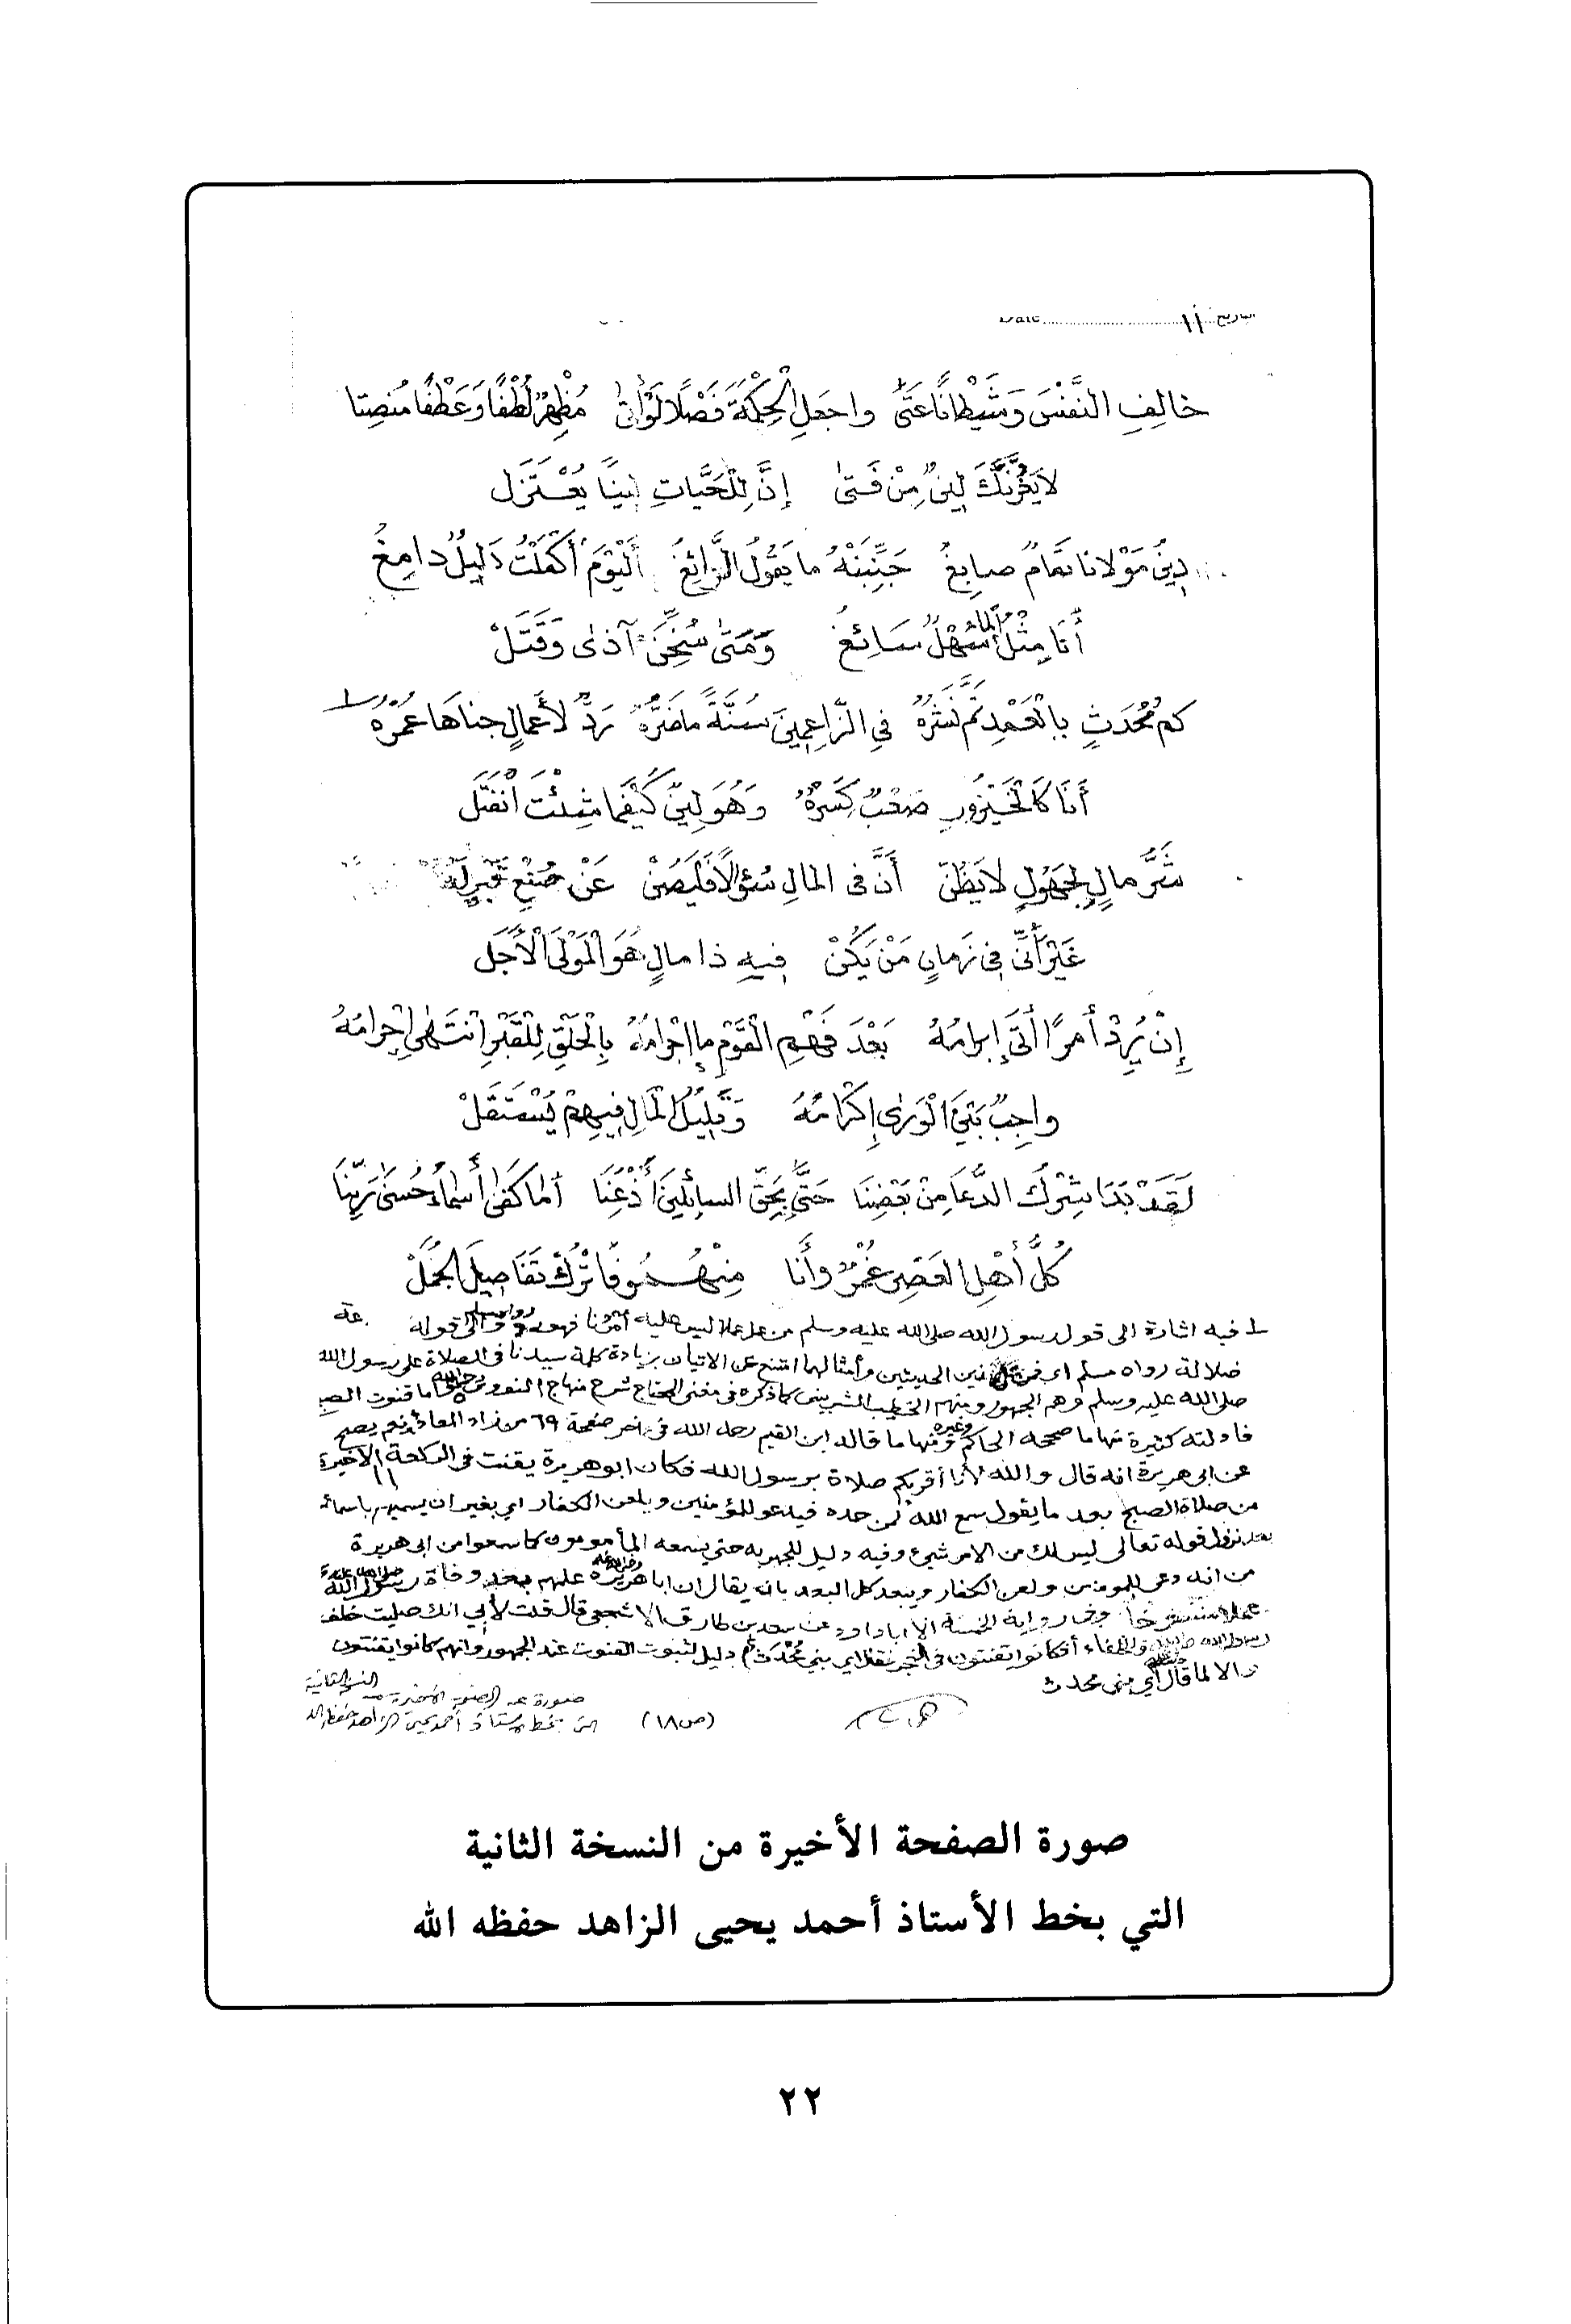 التاريخ Date
خالِفِ النَّفْسَ وَشَيْطانًا عَتَىٰ واجعَلِ الْحِكْمَةَ فَصْلًا لَوْ أتىٰ مُظْهِرٌ لُطْفًا وَعَطْفًا مُنصِتا
لا يَغُرَّنَّكَ لِينٌ مِنْ فَتىٰ إنَّ لِلْحَيَّاتِ لِينًا يُعْتَزَل
دِينُ مَوْلانا تمَامٌ صابِغُ جَنِّبَنْهُ ما يَقُولُ الزَّائِغُ أَلْيَوْمَ أَكْمَلْتُ دَلِيلٌ دامِغُ
أَنَا مِثْلُ الْمَاءِ سَهْلٌ سَائِغُ وَمَتىٰ سُخِّنَ آذىٰ وَقَتَلْ
كم مُحْدَثٍ بِالْعَمْدِ تَمَّ نَشْرُهُ في الزَّاعِمِينَ سُنَّةً ما ضَرَّهُ رَدٌّ لأَعمالٍ جناهَا عَمْرُهُ
أَنَا كَالْخَيْزُورِ صَعْبٌ كَسْرُهُ وَهُوَ لِينٌ كَيْفَما شِئْتَ انْفَتَل
شَرُّ مالٍ لِجَهُولٍ لا يَظُنّ أَنَّ فى المالِ سُؤالًا فَلْيَصُنْ عَنْ صُنْعِ
غَيْرَ أَنِّي في زَمانٍ مَنْ يَكُنْ فِيهِ ذا مالٍ هُوَ الْمَوْلَى الْأَجَل
إِنْ يُرِدْ أمرًا أَتَى إبرامُهُ بَعْدَ فَهْمِ الْقَوْمِ ما إجْرامُهُ بِالْحَلْقِ لِلْقَبْرِ انْتَهىٰ إحْرامُهُ
واجِبٌ بَيْنَ الْوَرىٰ إكْرامُهُ وَقَلِيلُ الْمالِ فِيهِمْ يُسْتَقَلْ
لَقَدْ بَدَا شِرْكُ الدُّعا مِنْ بَعْضِنا حَتَّى بِحَقِّ السائِلِينَ أُذْعِنَا أما كَفىٰ أَسْماءُ حُسْنىٰ رَبِّنَا
كُلُّ أَهْلِ العَصْرِ غُمْرٌ وأَنا مِنْهُمُو فَاتْرُكْ تَفَاصِيلَ الْجُمَلْ
فيه اشارة الى قول رسول الله صلى الله عليه وسلم من عمل عملا ليس عليه أمرنا فهو رد رواه مسلم والى قوله
ضلالة رواه مسلم اي فمن الحديثين وأمثالهما امتنع عن الاتيان بزيادة كلمة سيدنا فى الصلاة على رسول الله
صلى الله عليه وسلم وهم الجمهور ومنهم الخطيب الشربيني كما ذكره فى مغني المحتاج شرح منهاج النووى رحمه الله واما قنوت الصبح
فادلته كثيرة منها ما صححه الحاكم وغيره ومنها ما قاله ابن القيم رحمه الله فى اخر صفحة ٦٩ من زاد المعاد نعم يصح
عن ابى هريرة انه قال والله لأنا أقربكم صلاة برسول الله فكان ابو هريرة يقنت فى الركعة الاخيرة
من صلاة الصبح بعد ما يقول سمع الله لمن حمده فيدعو للمؤمنين ويلعن الكفار اي بغير ان يسميهم باسمائهم
بعد نزول قوله تعالى ليس لك من الامر شيء وفيه دليل للجهر به حتى يسمعه المأمومون كما سمعوا من ابى هريرة
من انه دعى للمومنين ولعن الكفار ويبعد كل البعد بانه يقال ان ابا هريرة رضي الله عنه علمهم بعد وفاة رسول الله صلى الله عليه وسلم
عملا رواية الخمسة الا ابا داود عن سعد بن طارق الاشجعى قال قلت لأبي انك صليت خلف
رسول الله والخلفاء أفكانوا يقنتون فى الفجر فقال اي بني مُحْدَث دليل لثبوت القنوت عند الجمهور وانهم كانوا يقنتون
والا لما قال أي بنى محدث
صورة عن الصفحة الأخيرة من النسخة الثانية
التي بخط الأستاذ أحمد يحيى الزاهد حفظه الله (ص١٨)
صورة الصفحة الأخيرة من النسخة الثانية
التي بخط الأستاذ أحمد يحيى الزاهد حفظه الله
٢٢